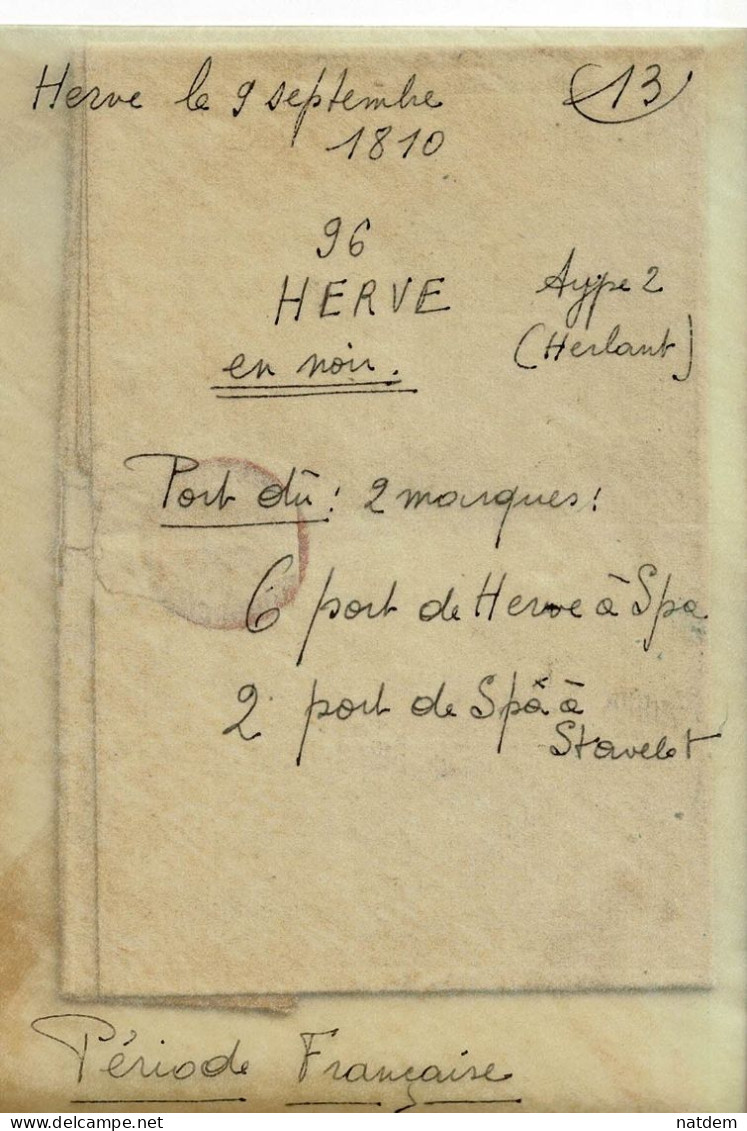 Herve le 9 septembre 13
1810
96
HERVE Type 2
en noir. (Herlant)
Port dû : 2 marques :
6 port de Herve à Spa
2 port de Spa à
Stavelot
Période Française
natdem